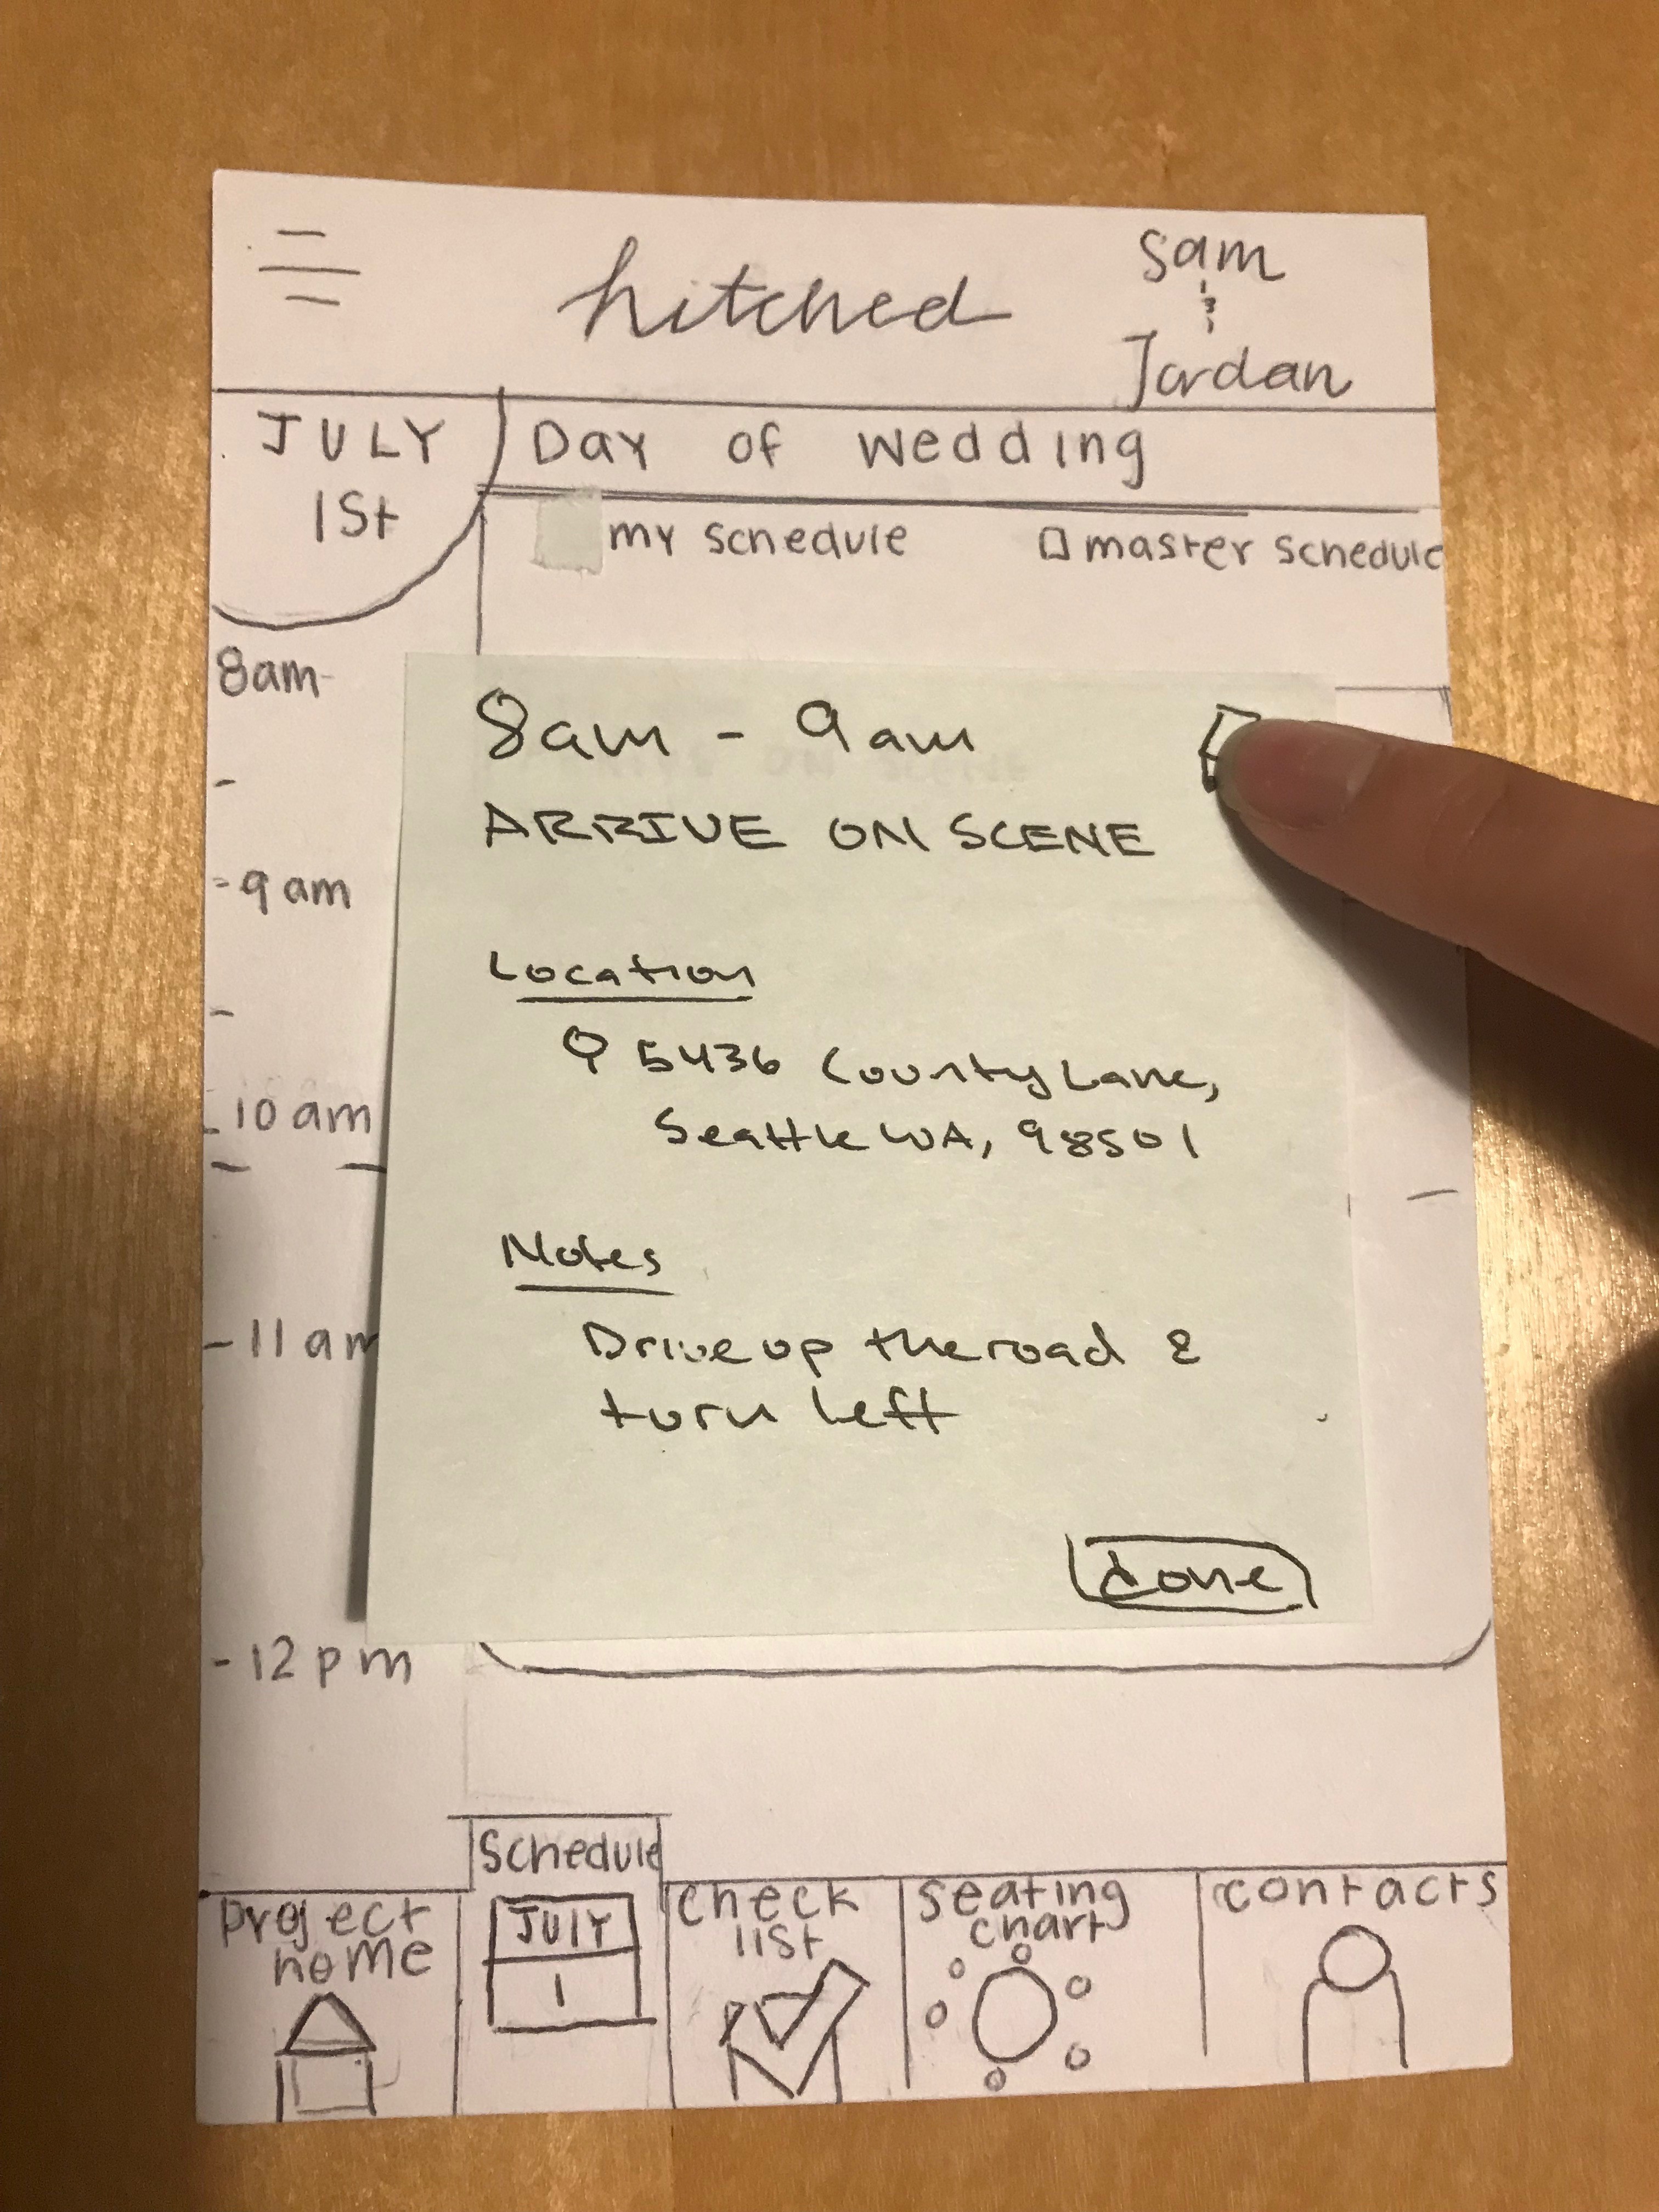 hitched
Sam
&
Jordan
JULY
1st
Day of wedding
my schedule
master schedule
8am
9am
10am
11am
12pm
8am - 9am
ARRIVE ON SCENE
Location
5436 County Lane,
Seattle WA, 98501
Notes
Drive up the road &
turn left
done
project
home
Schedule
JULY
1
check
list
seating
chart
contacts